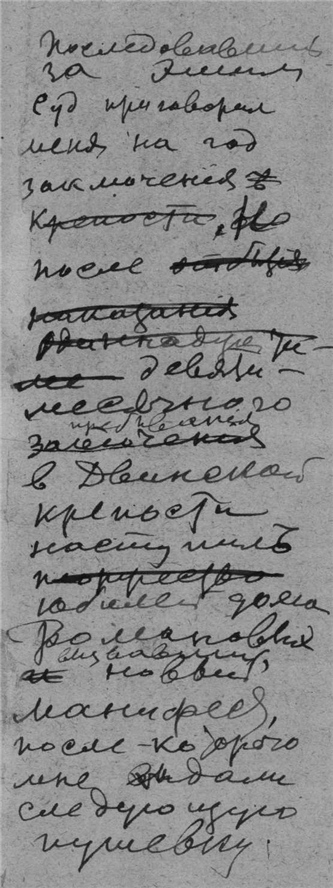 Последовавшій
за этимъ
суд приговорил
меня на год
заключения в
крепости, Но
после отбытия
наказания
девяти-
месячного
пребывания
заключения
в Двинской
крепости
наступилъ
торжество
юбилей дома
Романовых
вызвавший
и новый
манифест,
после которого
мне выдали
следующую
путевку: